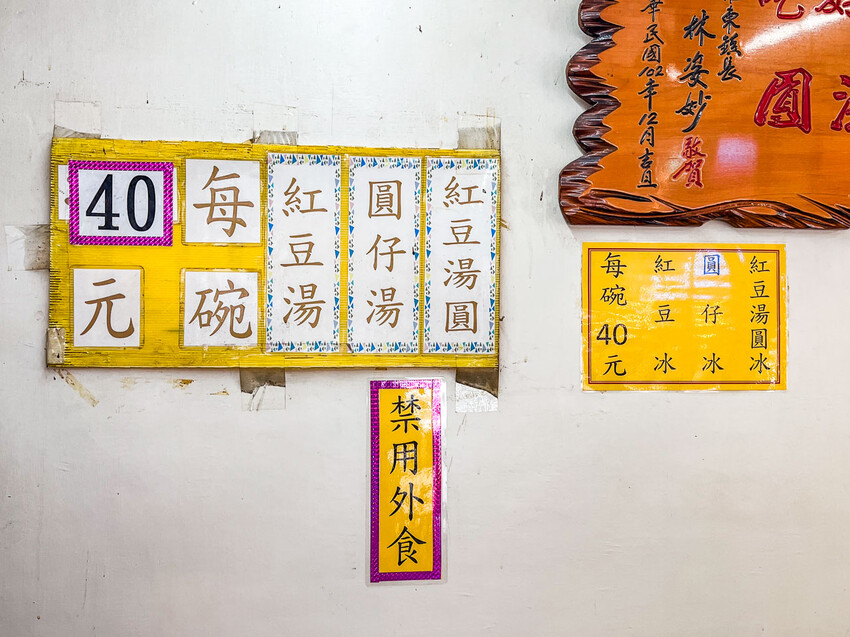 紅豆湯圓
圓仔湯
紅豆湯
每碗
40元
圓
東鎮長
林姿妙 敬賀
華民國102年12月吉旦
紅豆湯圓冰
圓仔冰
紅豆冰
每碗40元
禁用外食